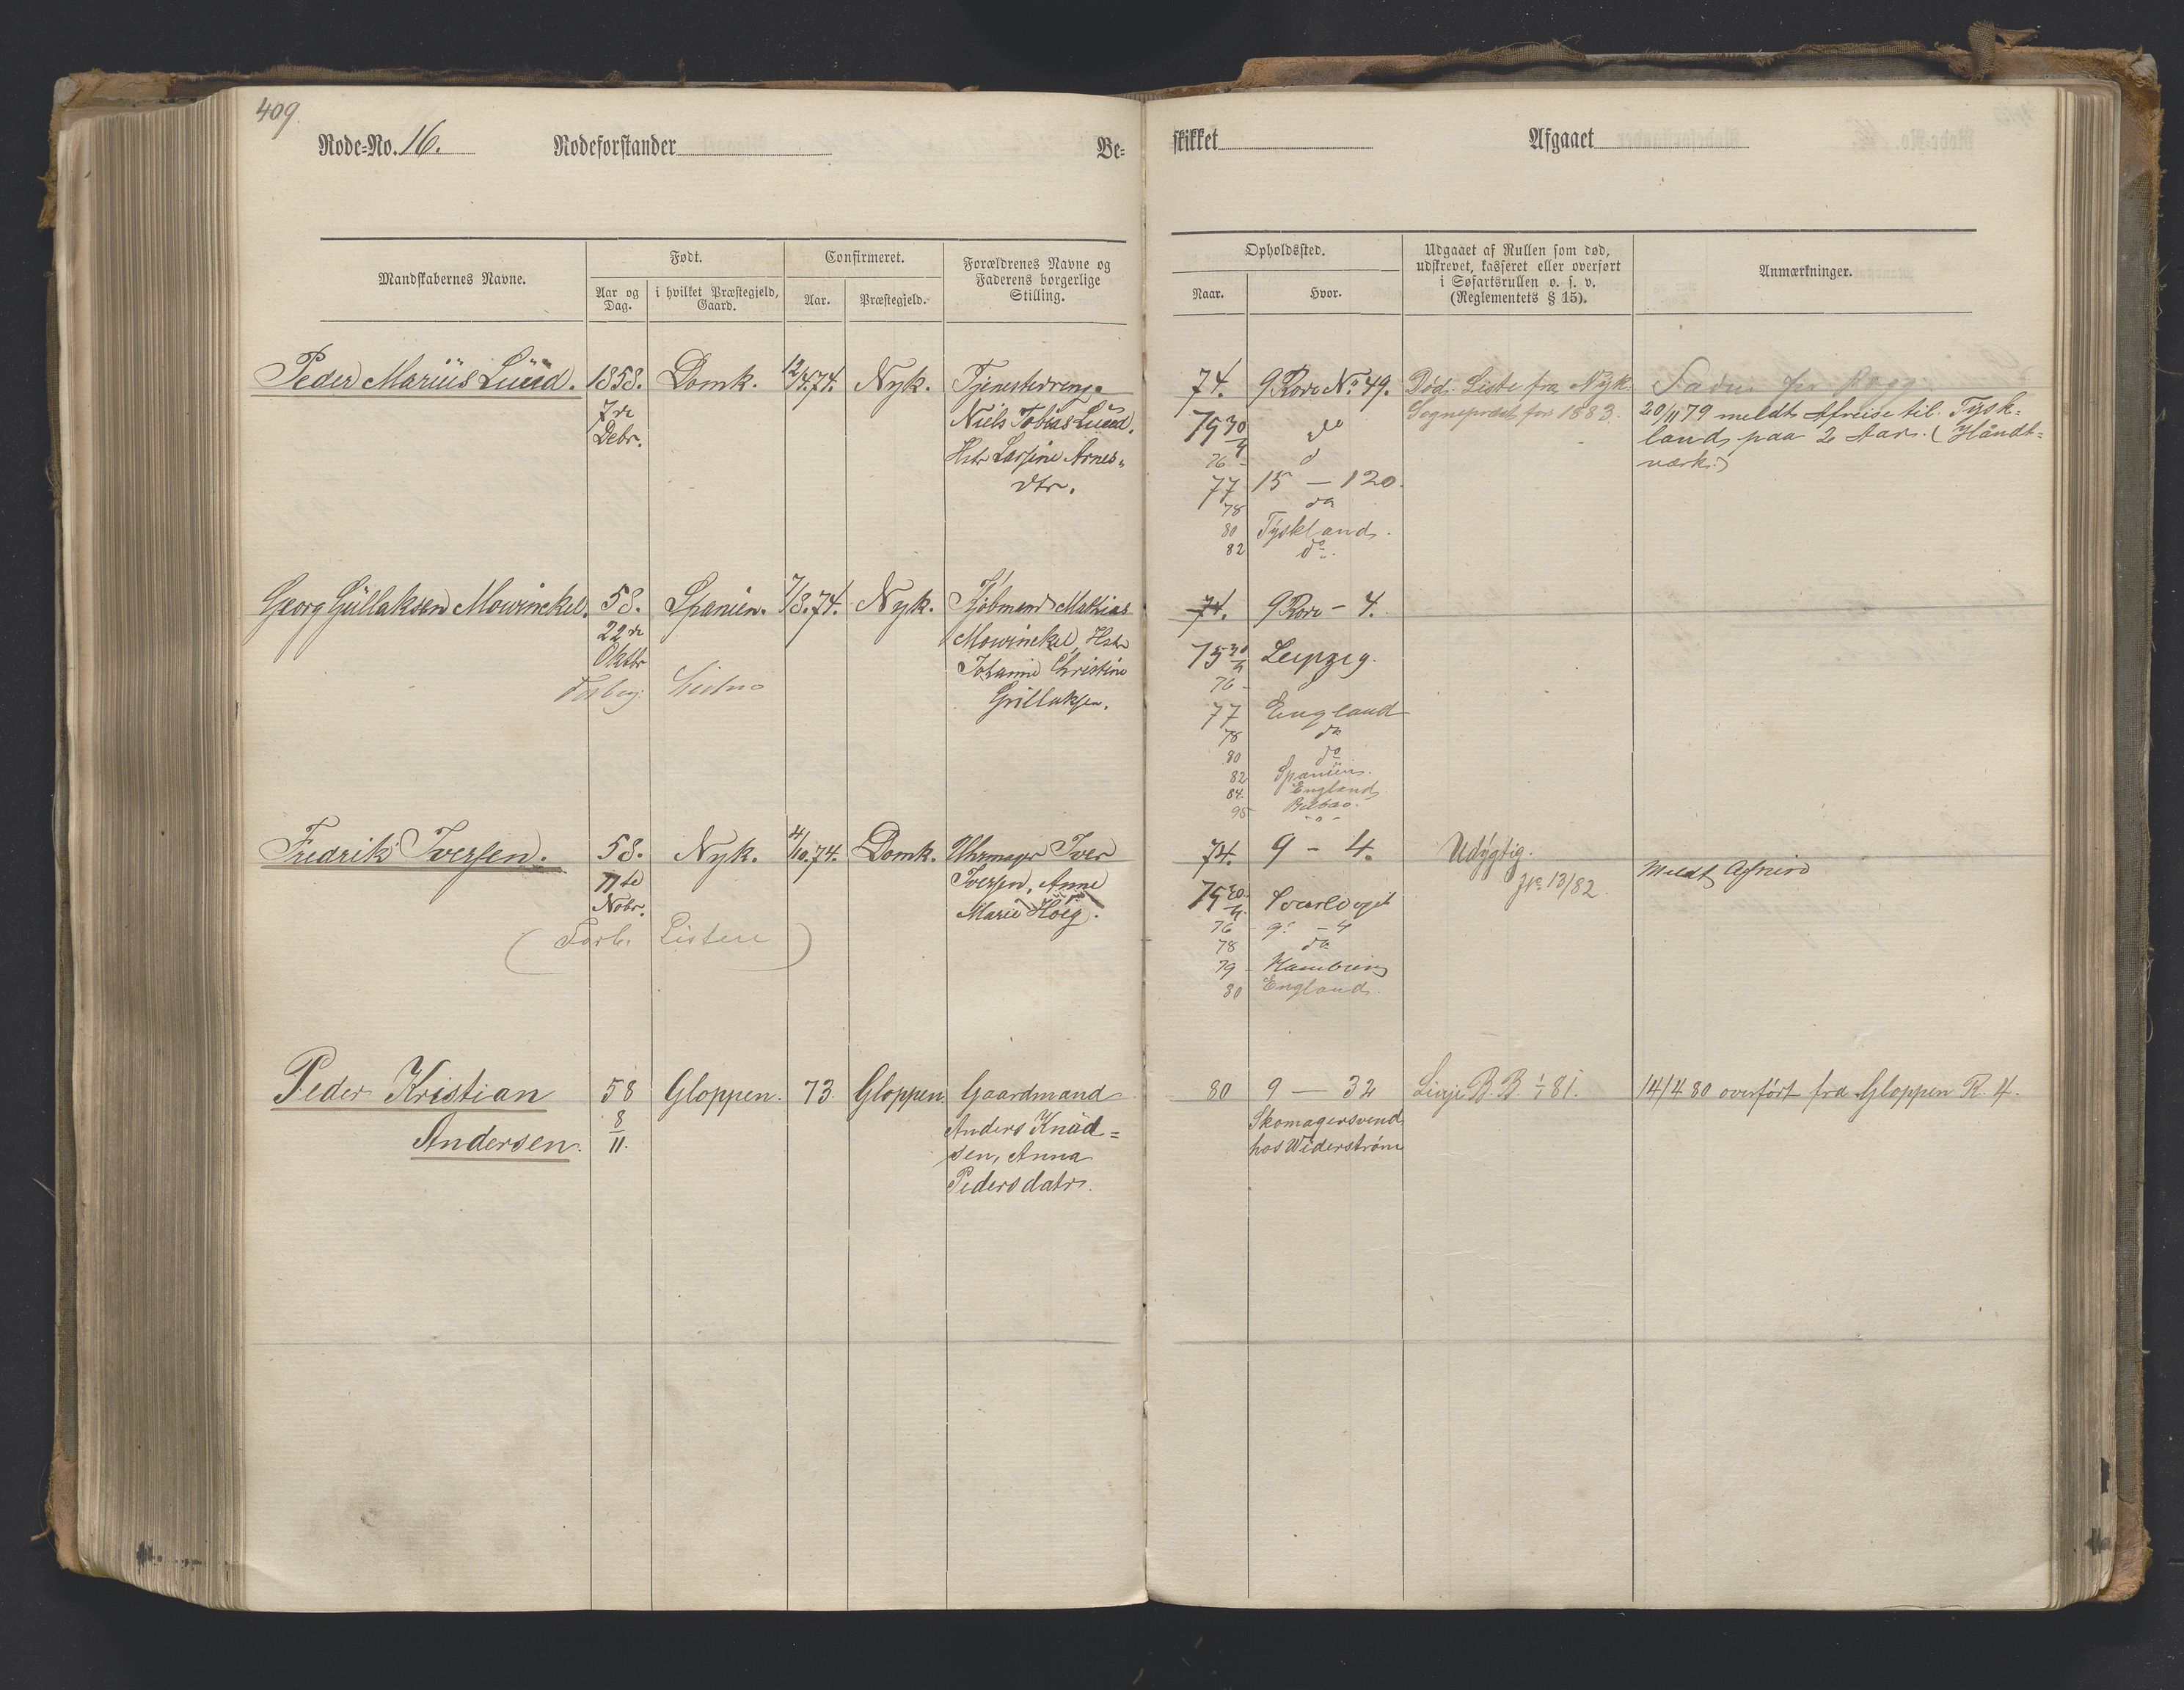 409.
Rode-No. 16. Rodeforstander Be-
skikket Afgaaet
Mandskabernes Navne.
Født.
Aar og Dag.
i hvilket Præstegjeld, Gaard.
Confirmeret.
Aar.
Præstegjeld.
Forældrenes Navne og
Faderens borgerlige
Stilling.
Opholdssted.
Naar.
Hvor.
Udgaaet af Rullen som død,
udskrevet, kasseret eller overført
i Søfartsrullen o. s. v.
(Reglementets § 15).
Anmærkninger.
Peder Marius Lund. 1858. Domk. 12/4.74. Nyk. Tjenestedreng.
7de
Debr.
Niels Tobias Lund.
Hstr Larsine Arnes-
dtr.
74. 9 Rode No 49.
75 30/4 do
76 - d
77 15 - 120.
78 do
80 Tyskland.
82 do
Død. Liste fra Nyk.
Sognepræst for 1883.
20/11 79 meldt Afreise til Tysk-
land paa 2 Aar. (Håndt-
værk.)
Georg Gullaksen Mowinckel. 58. Spanien. 7/8.74. Nyk. Kjøbmand Mathias
22de
Oktbr
Mowinckel, Hstr
Johanne Christine
Grillaksen.
74. 9 Rode - 4.
75 30/4 Leipzig.
76 -
77 England
78 do
80 do
82 Spanien.
84. England
95 Bilbao.
Fredrik Iversen. 58. Nyk. 4/10.74. Domk. Uhrmager Iver
11te
Nobr.
Iversen, Anne
Marie Höeg.
(Forb. Listen)
74. 9 - 4.
75 30/4
76 - 9 - 4
78 do
79 - Hamburg
80 England.
Udygtig.
Jr 13/82.
Meldt Afreise
Peder Kristian
Andersen.
58
8/11.
Gloppen. 73. Gloppen. Gaardmand
Anders Knud=
sen, Anna
Pedersdatr.
80 9 - 32
Skomagersvend
hos Widerstrøm
Linje B. B 1/1 81.
14/4 80 overført fra Gloppen R. 4.